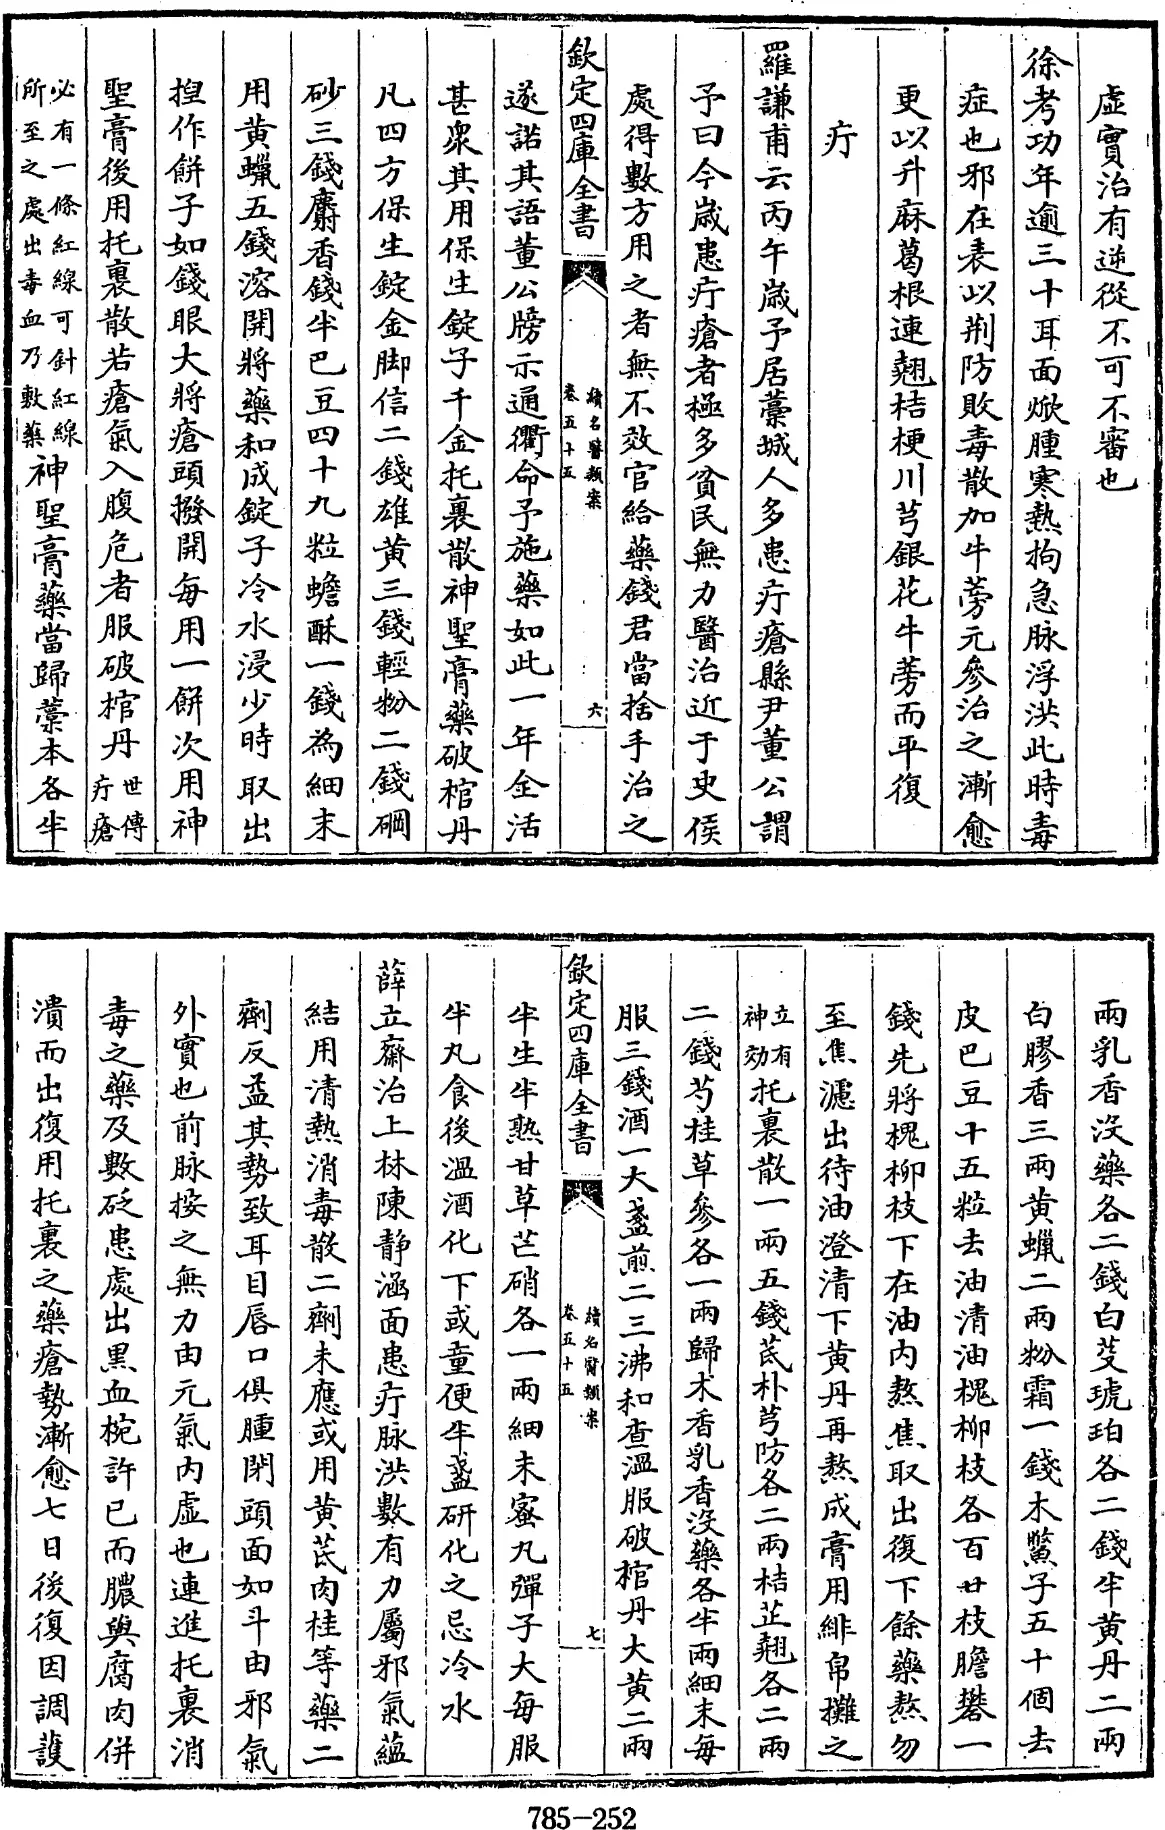 虛實治有逆從不可不審也
徐考功年逾三十耳面焮腫寒熱拘急脉浮洪此時毒
症也邪在表以荆防敗毒散加牛蒡元參治之漸愈
更以升麻葛根連翹桔梗川芎銀花牛蒡而平復
疔
羅謙甫云丙午歲予居藁城人多患疔瘡縣尹董公謂
予曰今歲患疔瘡者極多貧民無力醫治近于史侯
處得數方用之者無不效官給藥錢君當捨手治之
欽定四庫全書
續名醫類案
卷五十五
六
遂諾其語董公牓示通衢命予施藥如此一年全活
甚衆其用保生錠子千金托裏散神聖膏藥破棺丹
凡四方保生錠金脚信二錢雄黄三錢輕粉二錢硇
砂三錢麝香錢半巴豆四十九粒蟾酥一錢為細末
用黄蠟五錢溶開將藥和成錠子冷水浸少時取出
揑作餅子如錢眼大將瘡頭撥開每用一餅次用神
聖膏後用托裏散若瘡氣入腹危者服破棺丹世傳疔瘡
必有一條紅線可針紅線所至之處出毒血乃敷藥神聖膏藥當歸藁本各半
兩乳香没藥各二錢白芨琥珀各二錢半黄丹二兩
白膠香三兩黄蠟二兩粉霜一錢木鱉子五十個去
皮巴豆十五粒去油清油槐柳枝各百廿枝膽礬一
錢先將槐柳枝下在油内熬焦取出復下餘藥熬勿
至焦濾出待油澄清下黄丹再熬成膏用緋帛攤之
立有神効托裏散一兩五錢芪朴芎防各二兩桔芷翹各二兩
二錢芍桂草參各一兩歸术香乳香没藥各半兩細末每
服三錢酒一大盞煎二三沸和查溫服破棺丹大黄二兩
欽定四庫全書
續名醫類案
卷五十五
七
半生半熟甘草芒硝各一兩細末蜜丸彈子大每服
半丸食後溫酒化下或童便半盞研化之忌冷水
薛立齋治上林陳靜涵面患疔脉洪數有力屬邪氣蘊
結用清熱消毒散二劑未應或用黄芪肉桂等藥二
劑反益其勢致耳目唇口俱腫閉頭面如斗由邪氣
外實也前脉按之無力由元氣内虛也連進托裏消
毒之藥及數砭患處出黑血椀許已而膿與腐肉併
潰而出復用托裏之藥瘡勢漸愈七日後復因調護
785-252